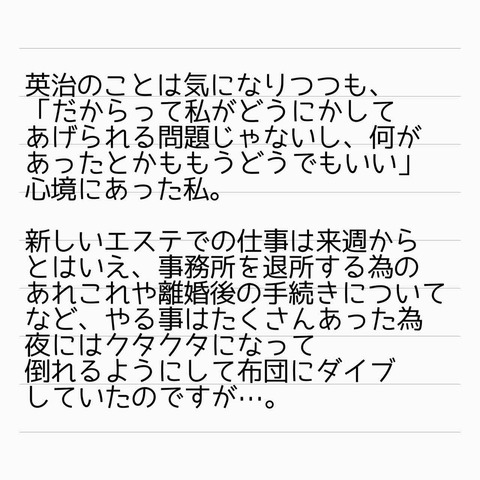 英治のことは気になりつつも、
「だからって私がどうにかして
あげられる問題じゃないし、何が
あったとかももうどうでもいい」
心境にあった私。
新しいエステでの仕事は来週から
とはいえ、事務所を退所する為の
あれこれや離婚後の手続きについて
など、やる事はたくさんあった為
夜にはクタクタになって
倒れるようにして布団にダイブ
していたのですが…。